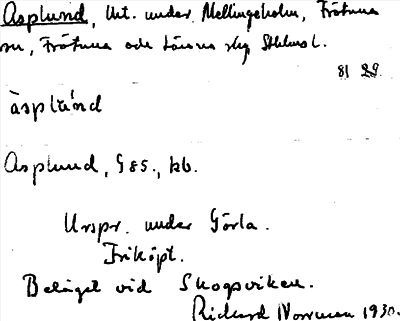 Asplund, Utt. under Mellingeholm, Frötuna
sn, Frötuna och Länna skg Sthlms l.
81 29
àsplùnd
Asplund, G 85., kb.
Urspr. under Görla.
Friköpt.
Beläget vid Skogsviken.
Rickard Norrman 1930.